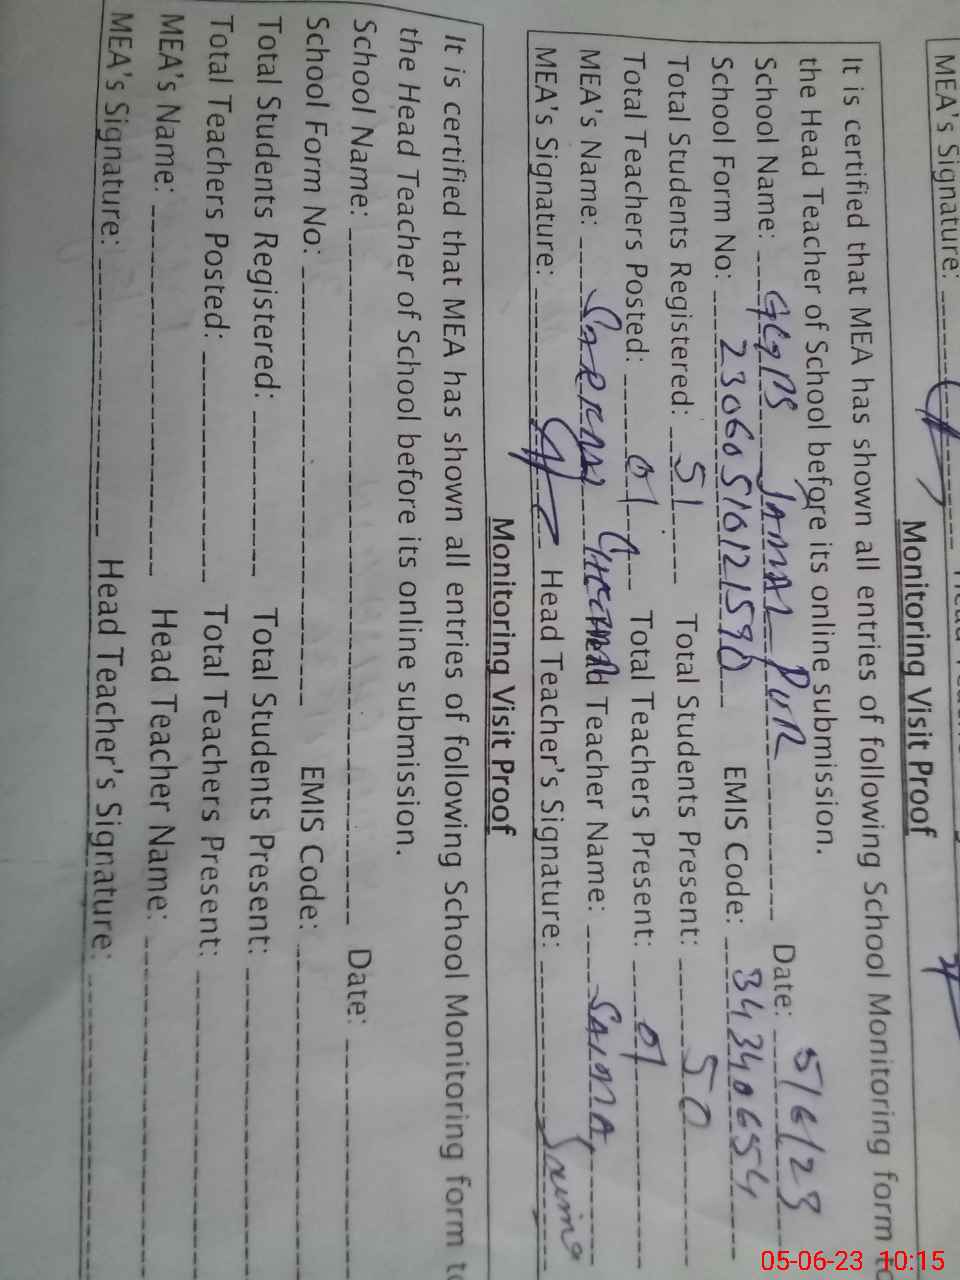 MEA's Signature:
Monitoring Visit Proof
It is certified that MEA has shown all entries of following School Monitoring form to
the Head Teacher of School before its online submission.
School Name: GGPS JAMAL PUR Date: 5/6/23
School Form No: 23060510121590 EMIS Code: 34340654
Total Students Registered: 51 Total Students Present: 50
Total Teachers Posted: 01 Total Teachers Present: 01
MEA's Name: Head Teacher Name: SAIMA
MEA's Signature: Head Teacher's Signature: Saima
Monitoring Visit Proof
It is certified that MEA has shown all entries of following School Monitoring form to
the Head Teacher of School before its online submission.
School Name: Date:
School Form No: EMIS Code:
Total Students Registered: Total Students Present:
Total Teachers Posted: Total Teachers Present:
MEA's Name: Head Teacher Name:
MEA's Signature: Head Teacher's Signature:
05-06-23 10:15